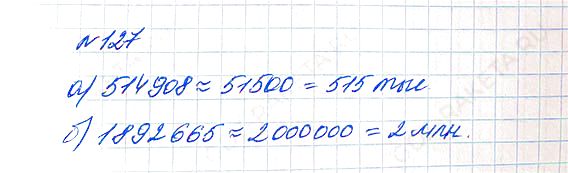 №127
а) 514908 ≈ 51500 = 515 тыс.
б) 1892665 ≈ 2000000 = 2 млн.